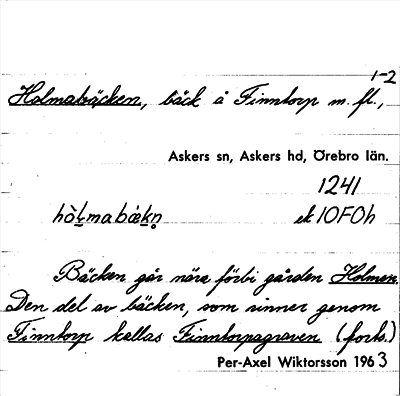 1-2
Holmabäcken, bäck å Finntorp m. fl.,
Askers sn, Askers hd, Örebro län.
1241
hòḷmabæ̀kn̥ ek 10F0h
Bäcken går nära förbi gården Holmen.
Den del av bäcken, som rinner genom
Finntorp kallas Finntorpagraven (forts.)
Per-Axel Wiktorsson 1963